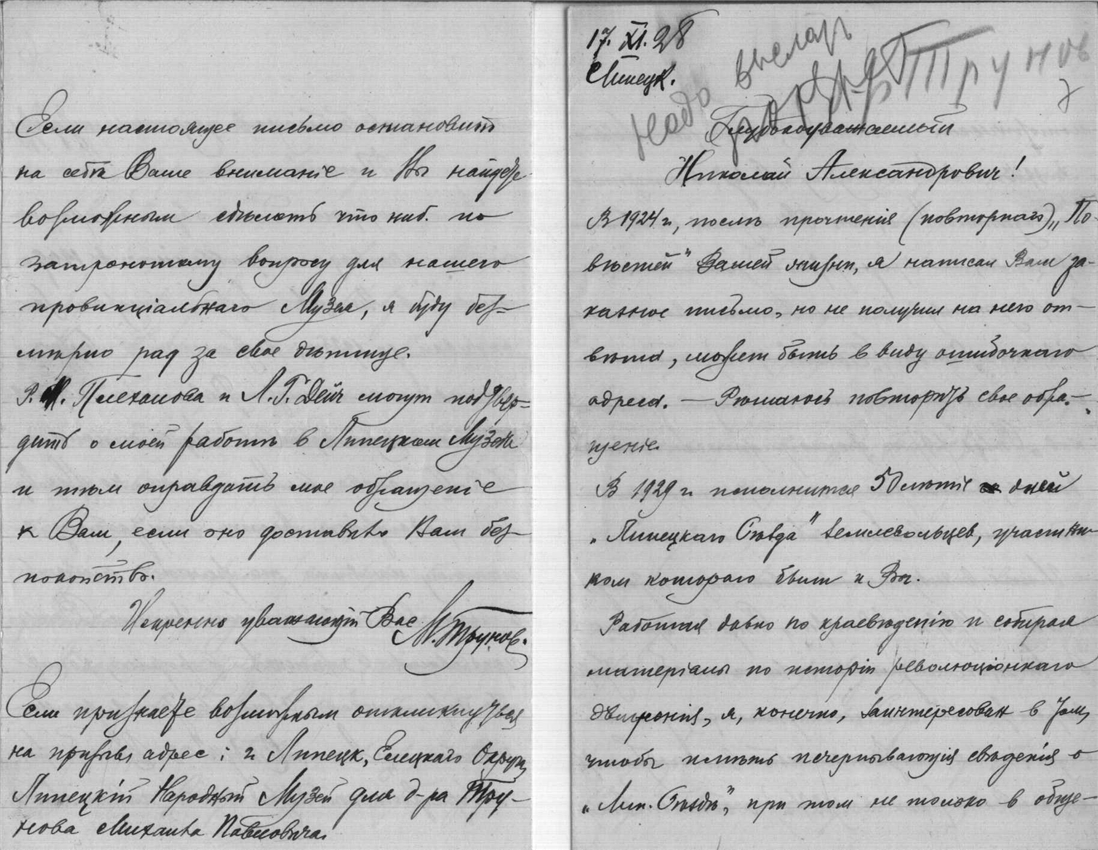 Если настоящее письмо остановит
на себѣ Ваше вниманіе и Вы найдете
возможным сдѣлать что ниб. по
затронутому вопросу для нашего
провинціальнаго Музея, я буду без-
мѣрно рад за свое дѣтище.
Р. М. Плеханова и Л. Г. Дейч могут подтвер-
дить о моей работѣ в Липецком Музеѣ
и тѣм оправдать мое обращеніе
к Вам, если оно доставит Вам без-
покойство.
Искренно уважающій Вас М. Трунов.
Если признаете возможным откликнуться
на призыв адрес: г. Липецк, Елецкаго Округа,
Липецкій Народный Музей для д-ра Тру-
нова Михаила Павловича.
17. XI. 28
Липецк.
Надо выслать
Трунов
Глубокоуважаемый
Николай Александрович!
В 1924 г., послѣ прочтенія (повторнаго) „По-
вѣстей" Вашей жизни, я написал Вам за-
казное письмо, но не получил на него от-
вѣта, может быть в виду ошибочнаго
адреса. — Рѣшаюсь повторить свое обра-
щеніе.
В 1929 г. исполнится 50 лѣтіе дней
„Липецкаго Съѣзда" землевольцев, участни-
ком котораго были и Вы.
Работая давно по краевѣдѣнію и собирая
матеріалы по исторіи революціоннаго
движенія, я, конечно, заинтересован в том,
чтобы имѣть исчерпывающія свѣдѣнія о
„Лип. Съѣздѣ", при том не только в обще-